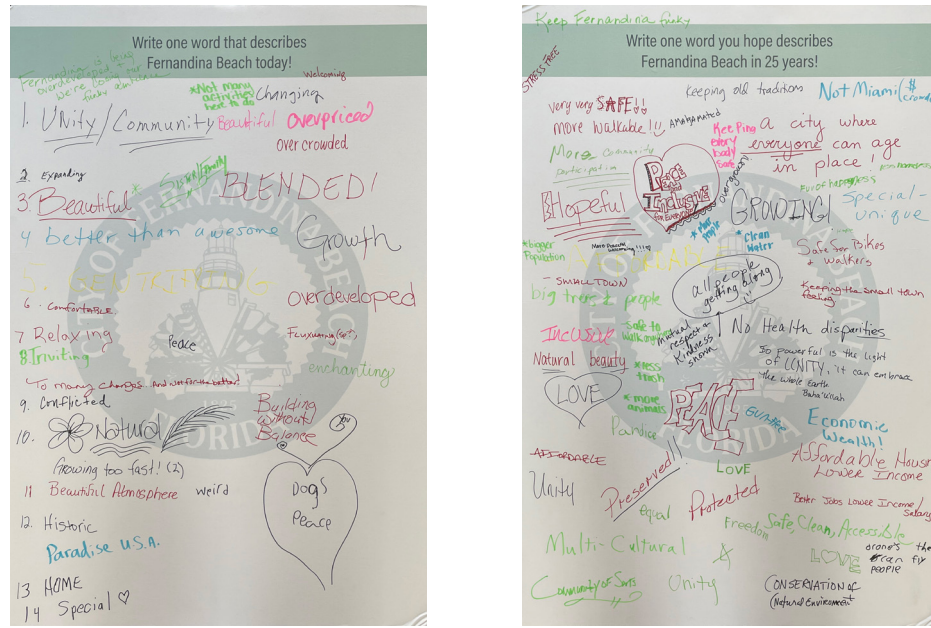 Write one word that describes
Fernandina Beach today!
Fernandina is being
overdeveloped &
we're losing our
funky
*Not many
activities
here to do
Welcoming
Changing
1. Unity/Community
Beautiful
Overpriced
over crowded
2. Expanding
3. Beautiful
BLENDED!
4 better than awesome
Growth
5.
6. Comfortable
overdeveloped
7 Relaxing
Peace
8. Inviting
enchanting
To many changes. And not for the better!
9. Conflicted
Building
without
Balance
You
10. Natural
Growing too fast! (2)
11 Beautiful Atmosphere
weird
Dogs
Peace
12. Historic
Paradise U.S.A.
13 HOME
14 Special
CITY OF FERNANDINA BEACH
FLORIDA
1825
Keep Fernandina funky
Write one word you hope describes
Fernandina Beach in 25 years!
STRESS FREE
keeping old traditions
Not Miami
very very SAFE!!
more walkable!!
Amalgamated
Keeping
every
body
safe
A city where
everyone can age
in place!
More Community
participation
Peace
Inclusive
for Everyone
overgrown!
Full of happyness
Hopeful
GROWING!
Special-
unique
*bigger
Population
*Clean
Water
Safe for Bikes
& walkers
- SMALL TOWN
big trees & people
all people
getting along
Keeping the small town
feeling
Inclusive
Safe to
walk
mutual
respect &
kindness
shown
No Health disparities
Natural beauty
*less
trash
So powerful is the light
of UNITY, it can embrace
the whole Earth
Baha'u'llah
LOVE
*more
animals
PEACE
Gun-free
Economic
Wealth!
Paridice
AFFORDABLE
Affordable Hous
Lower Income
LOVE
Unity
Preserved!!
equal
Protected
Better Jobs Lower Income/
Salary
Freedom
Safe, Clean, Accessible
Multi-Cultural
LOVE
drones the
can fly
people
Community of Sorts
Unity
CONSERVATION of
(Natural Environment